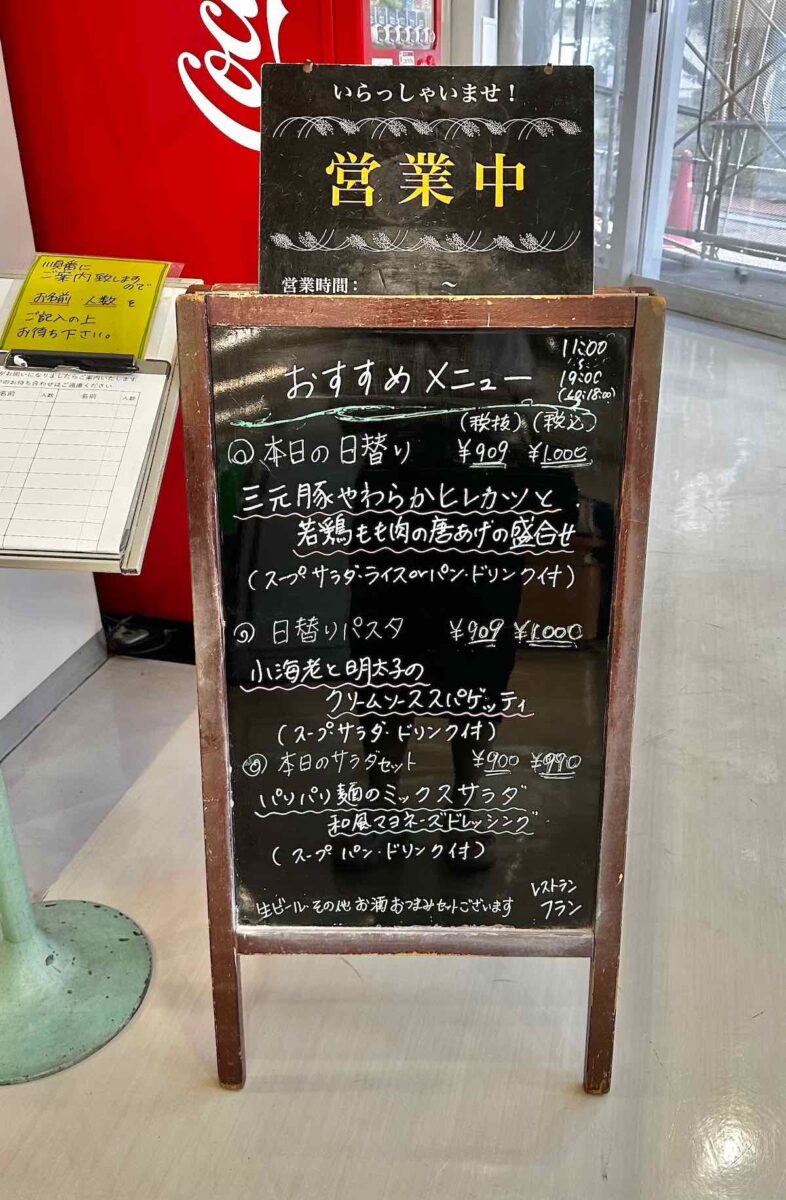 Coc
いらっしゃいませ！
営業中
営業時間： ～
順番に
ご案内致します
ので
お名前・人数を
ご記入の上
お待ち下さい。
がお揃いになりましたらご案内いたします
のお待ち合わせはご遠慮ください
名前 人数 名前 人数
11:00
～
19:00
(L.O:18:00)
おすすめメニュー
(税抜) (税込)
① 本日の日替り ¥909 ¥1.000
三元豚やわらかヒレカツと
若鶏もも肉の唐あげの盛合せ
(スープ・サラダ・ライスorパン・ドリンク付)
② 日替りパスタ ¥909 ¥1.000
小海老と明太子の
クリームソーススパゲッティ
(スープ・サラダ・ドリンク付)
③ 本日のサラダセット ¥900 ¥990
パリパリ麺のミックスサラダ
和風マヨネーズドレッシング
(スープ パン・ドリンク付)
生ビール・その他お酒おつまみセットございます
レストラン
フラン